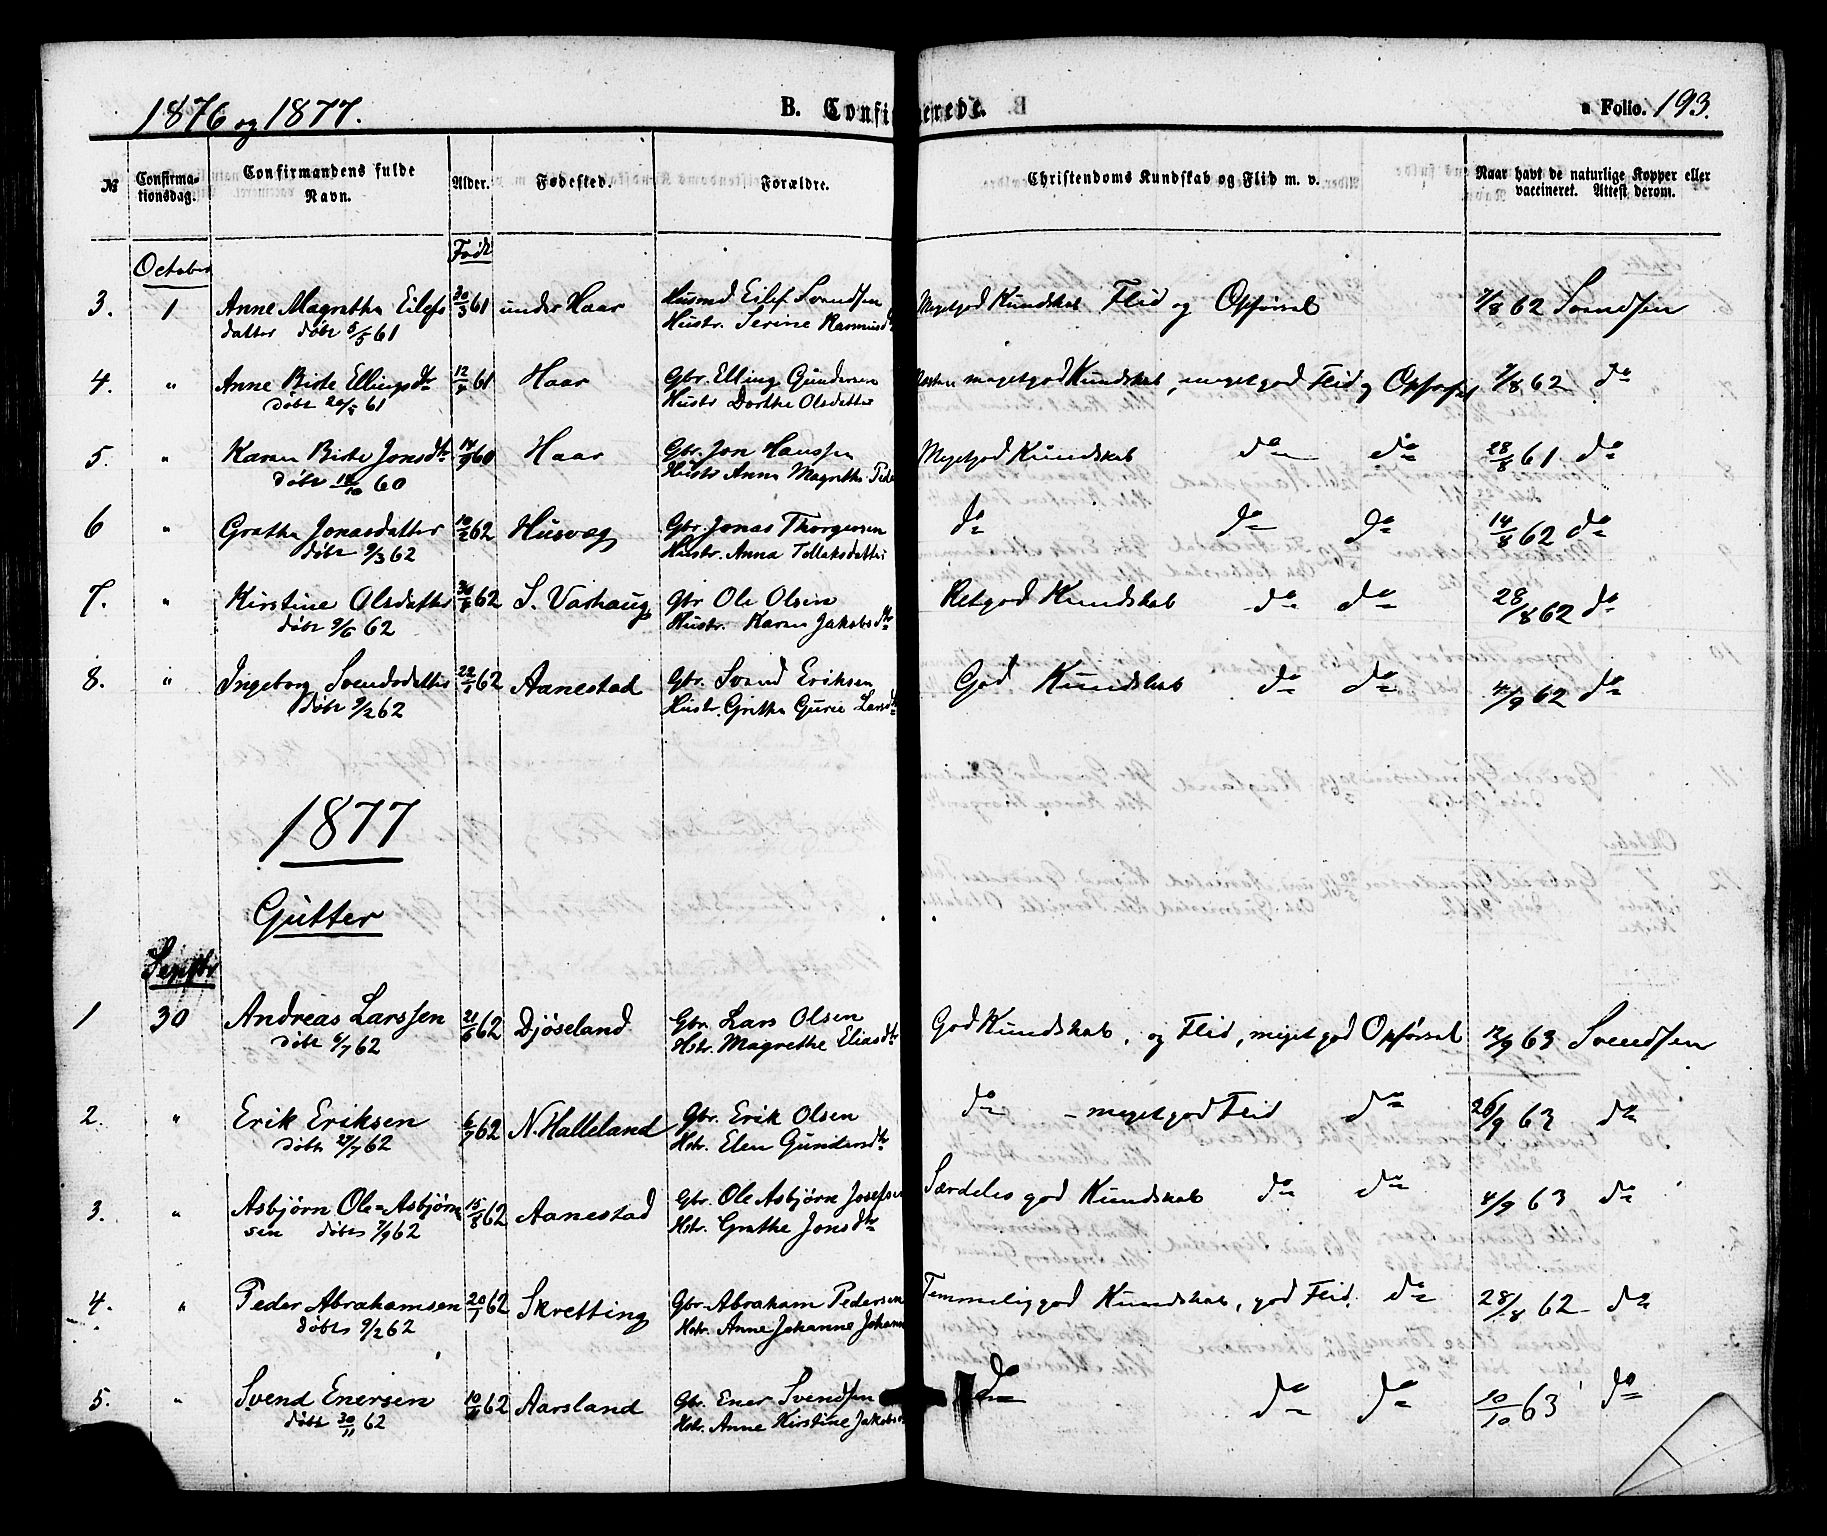 1876 og 1877.
B. Confirmerede.
Folio. 193.
№
Confirma-
tionsdag.
Confirmandens fulde
Navn.
Alder.
Fødested.
Forældre.
Christendoms Kundskab og Flid m. v.
Naar havt de naturlige Kopper eller
vaccineret. Attest derom.
Født
October
3. 1 Anne Magrethe Eilefs 61 under Haar Husmd Eilef Svendsen Megetgod Kundskab Flid og Opførsel 7/8 62 Svendsen
datter døbt 5/5 61 Hustr. Serine Rasmusd
4. " Anne Birte Ellingsdtr 61 Haar Gbr. Elling Gundersen Næsten megetgod Kundskab, megetgod Flid og Opførsel 7/8 62 do
døbt 61 Hustr Dorthe Olsdatter
5. " Karen Birte Jonsdtr 60 Haar Gbr. Jon Hanssen Megetgod Kundskab do do 28/8 61. do
døbt 60 Hustr Anne Magrethe Peder
6 " Grethe Jonasdatter 10/2 62 Husveg Gbr. Jonas Thorgersen do do do 14/8 62 do
døbt 9/3 62 Hustr. Anna Tollaksdatter
7. " Kirstine Olsdatter 62 S. Varhaug Gbr Ole Olsen Retgod Kundskab do do 28/8 62 do
døbt 9/6 62 Hustr. Karen Jakobsdtr
8. " Ingeborg Svendsdatter 22/1 62 Aanestad Gbr. Svend Eriksen God Kundskab do do 4/9 62 do
døbt 9/2 62 Hustr. Grethe Gurie Larsdtr
1877
Gutter
Septbr
1 30 Andreas Larssen 21/6 62 Djøseland Gbr. Lars Olsen God Kundskab, og Flid, meget god Opførsel 12/9 63 Svendsen
døbt 6/7 62 Hstr. Magrethe Eliasdtr
2. " Erik Eriksen 6/7 62 N. Halleland Gbr. Erik Olsen do megetgod Flid do 26/9 63 do
døbt 27/7 62 Hstr. Elen Gundersdtr
3. " Asbjørn Ole=Asbjørn 15/8 62 Aanestad Gbr. Ole Asbjørn Josefsen Særdeles god Kundskab do do 4/9 63 do
sen døbt 7/9 62 Hstr. Grethe Jonsdtr
4. " Peder Abrahamsen 20/1 62 Skretting Gbr. Abraham Pedersen Temmelig god Kundskab, god Flid. do 28/8 62 do
døbt 9/2 62 Hstr. Anne Johanne Johann
5. " Svend Enersen 62 Aarsland Gbr. Ener Svendsen do do do 10/10 63 do
døbt 30/11 62 Hstr. Anne Kirstine Jakobs